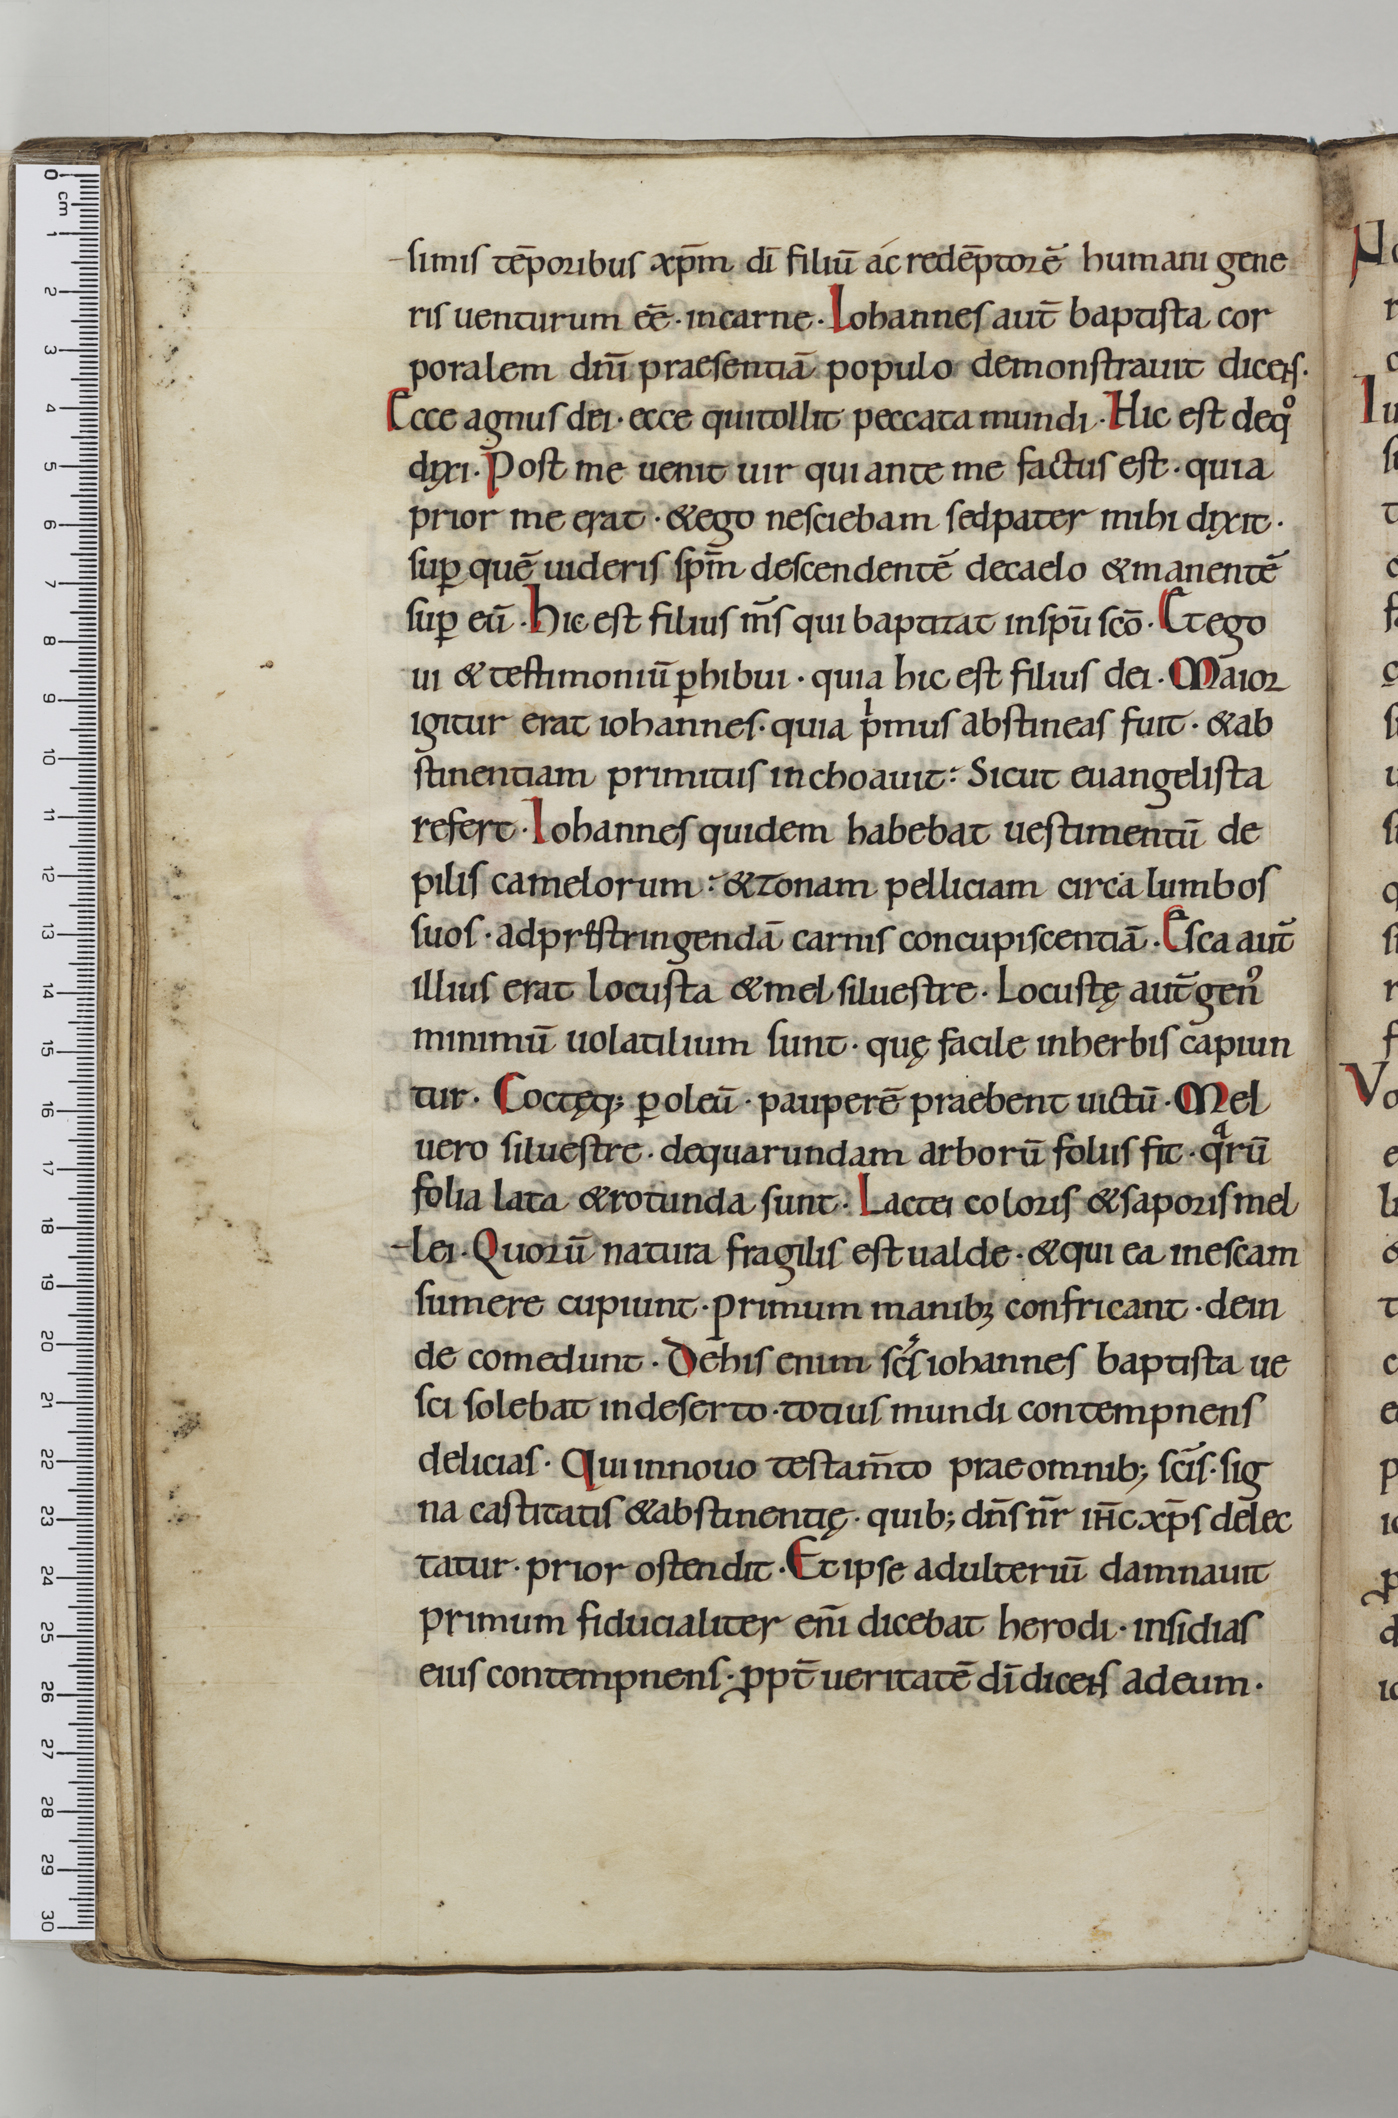 simis tēporibus xp̄m dī filiū ac redēptorē humani gene
ris uenturum eē· in carne· Iohannes aut̄ baptista cor
poralem dn̄i praesentiā populo demonstrauit dicens·
Ecce agnus dei· ecce qui tollit peccata mundi· Hic est de qͦ
dixi· Post me uenit uir qui ante me factus est· quia
prior me erat· & ego nesciebam sed pater mihi dixit·
suꝑ quē uideris sp̄m descendentē de caelo & manentē
suꝑ eū· Hic est filius m̄s qui baptizat in sp̄u scō· Et ego
ui & testimoniū ꝑhibui· quia hic est filius dei· Maior
igitur erat iohannes· quia pͥmus abstineas fuit· & ab
stinentiam primitus inchoauit: Sicut euangelista
refert· Iohannes quidem habebat uestimentū de
pilis camelorum: & zonam pelliciam circa lumbos
suos· ad prestringendā carnis concupiscentiā· Esca aut̄
illius erat locusta & mel siluestre· Locustę aut̄ genꝰ
minimū uolatilium sunt· quę facile in herbis capiun
tur· Coctęq; ꝑ oleū· pauperē praebent uictū· Mel
uero siluestre· de quarundam arborū foliis fit· qͣrū
folia lata & rotunda sunt· Lactei coloris & saporis mel
lei· Quorū natura fragilis est ualde· & qui ea in escam
sumere cupiunt· primum manibꝫ confricant· dein
de comedunt· De his enim scs̄ iohannes baptista ue
sci solebat in deserto· totius mundi contempnens
delicias· Qui in nouo testam̄to prae omnib; scīs· sig
na castitatis & abstinentię· quib; dn̄s nr̄ ih̄c xp̄s delec
tatur· prior ostendit· Et ipse adulteriū damnauit
primum fiducialiter enī dicebat herodi· insidias
eius contempnens· ꝓpt̄ ueritatē dī dicens ad eum·